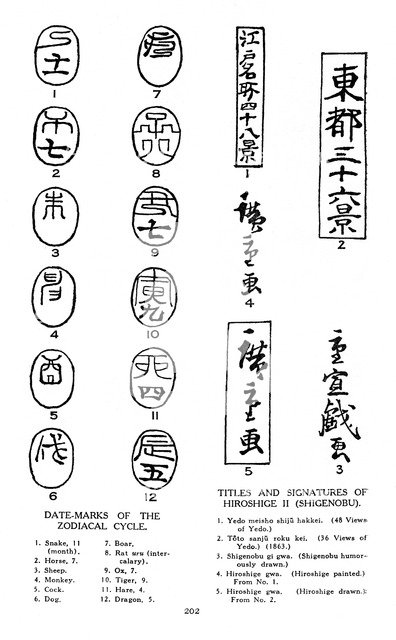 巳十一
1
午七
2
未
3
申
4
酉
5
戌
6
亥
7
8
丑七
9
寅九
10
卯四
11
辰五
12
江戸名所四十八景
1
東都三十六景
2
廣重画
4
廣重画
5
重宣戯画
3
DATE-MARKS OF THE
ZODIACAL CYCLE.
1. Snake, 11
(month).
2. Horse, 7.
3. Sheep.
4. Monkey.
5. Cock.
6. Dog.
7. Boar.
8. Rat uru (inter-
calary).
9. Ox, 7.
10. Tiger, 9.
11. Hare, 4.
12. Dragon, 5.
TITLES AND SIGNATURES OF
HIROSHIGE II (SHIGENOBU).
1. Yedo meisho shijū hakkei. (48 Views
of Yedo.)
2. Tōto sanjū roku kei. (36 Views of
Yedo.) (1863.)
3. Shigenobu gi gwa. (Shigenobu humor-
ously drawn.)
4. Hiroshige gwa. (Hiroshige painted.)
From No. 1.
5. Hiroshige gwa. (Hiroshige drawn.):
From No. 2.
202